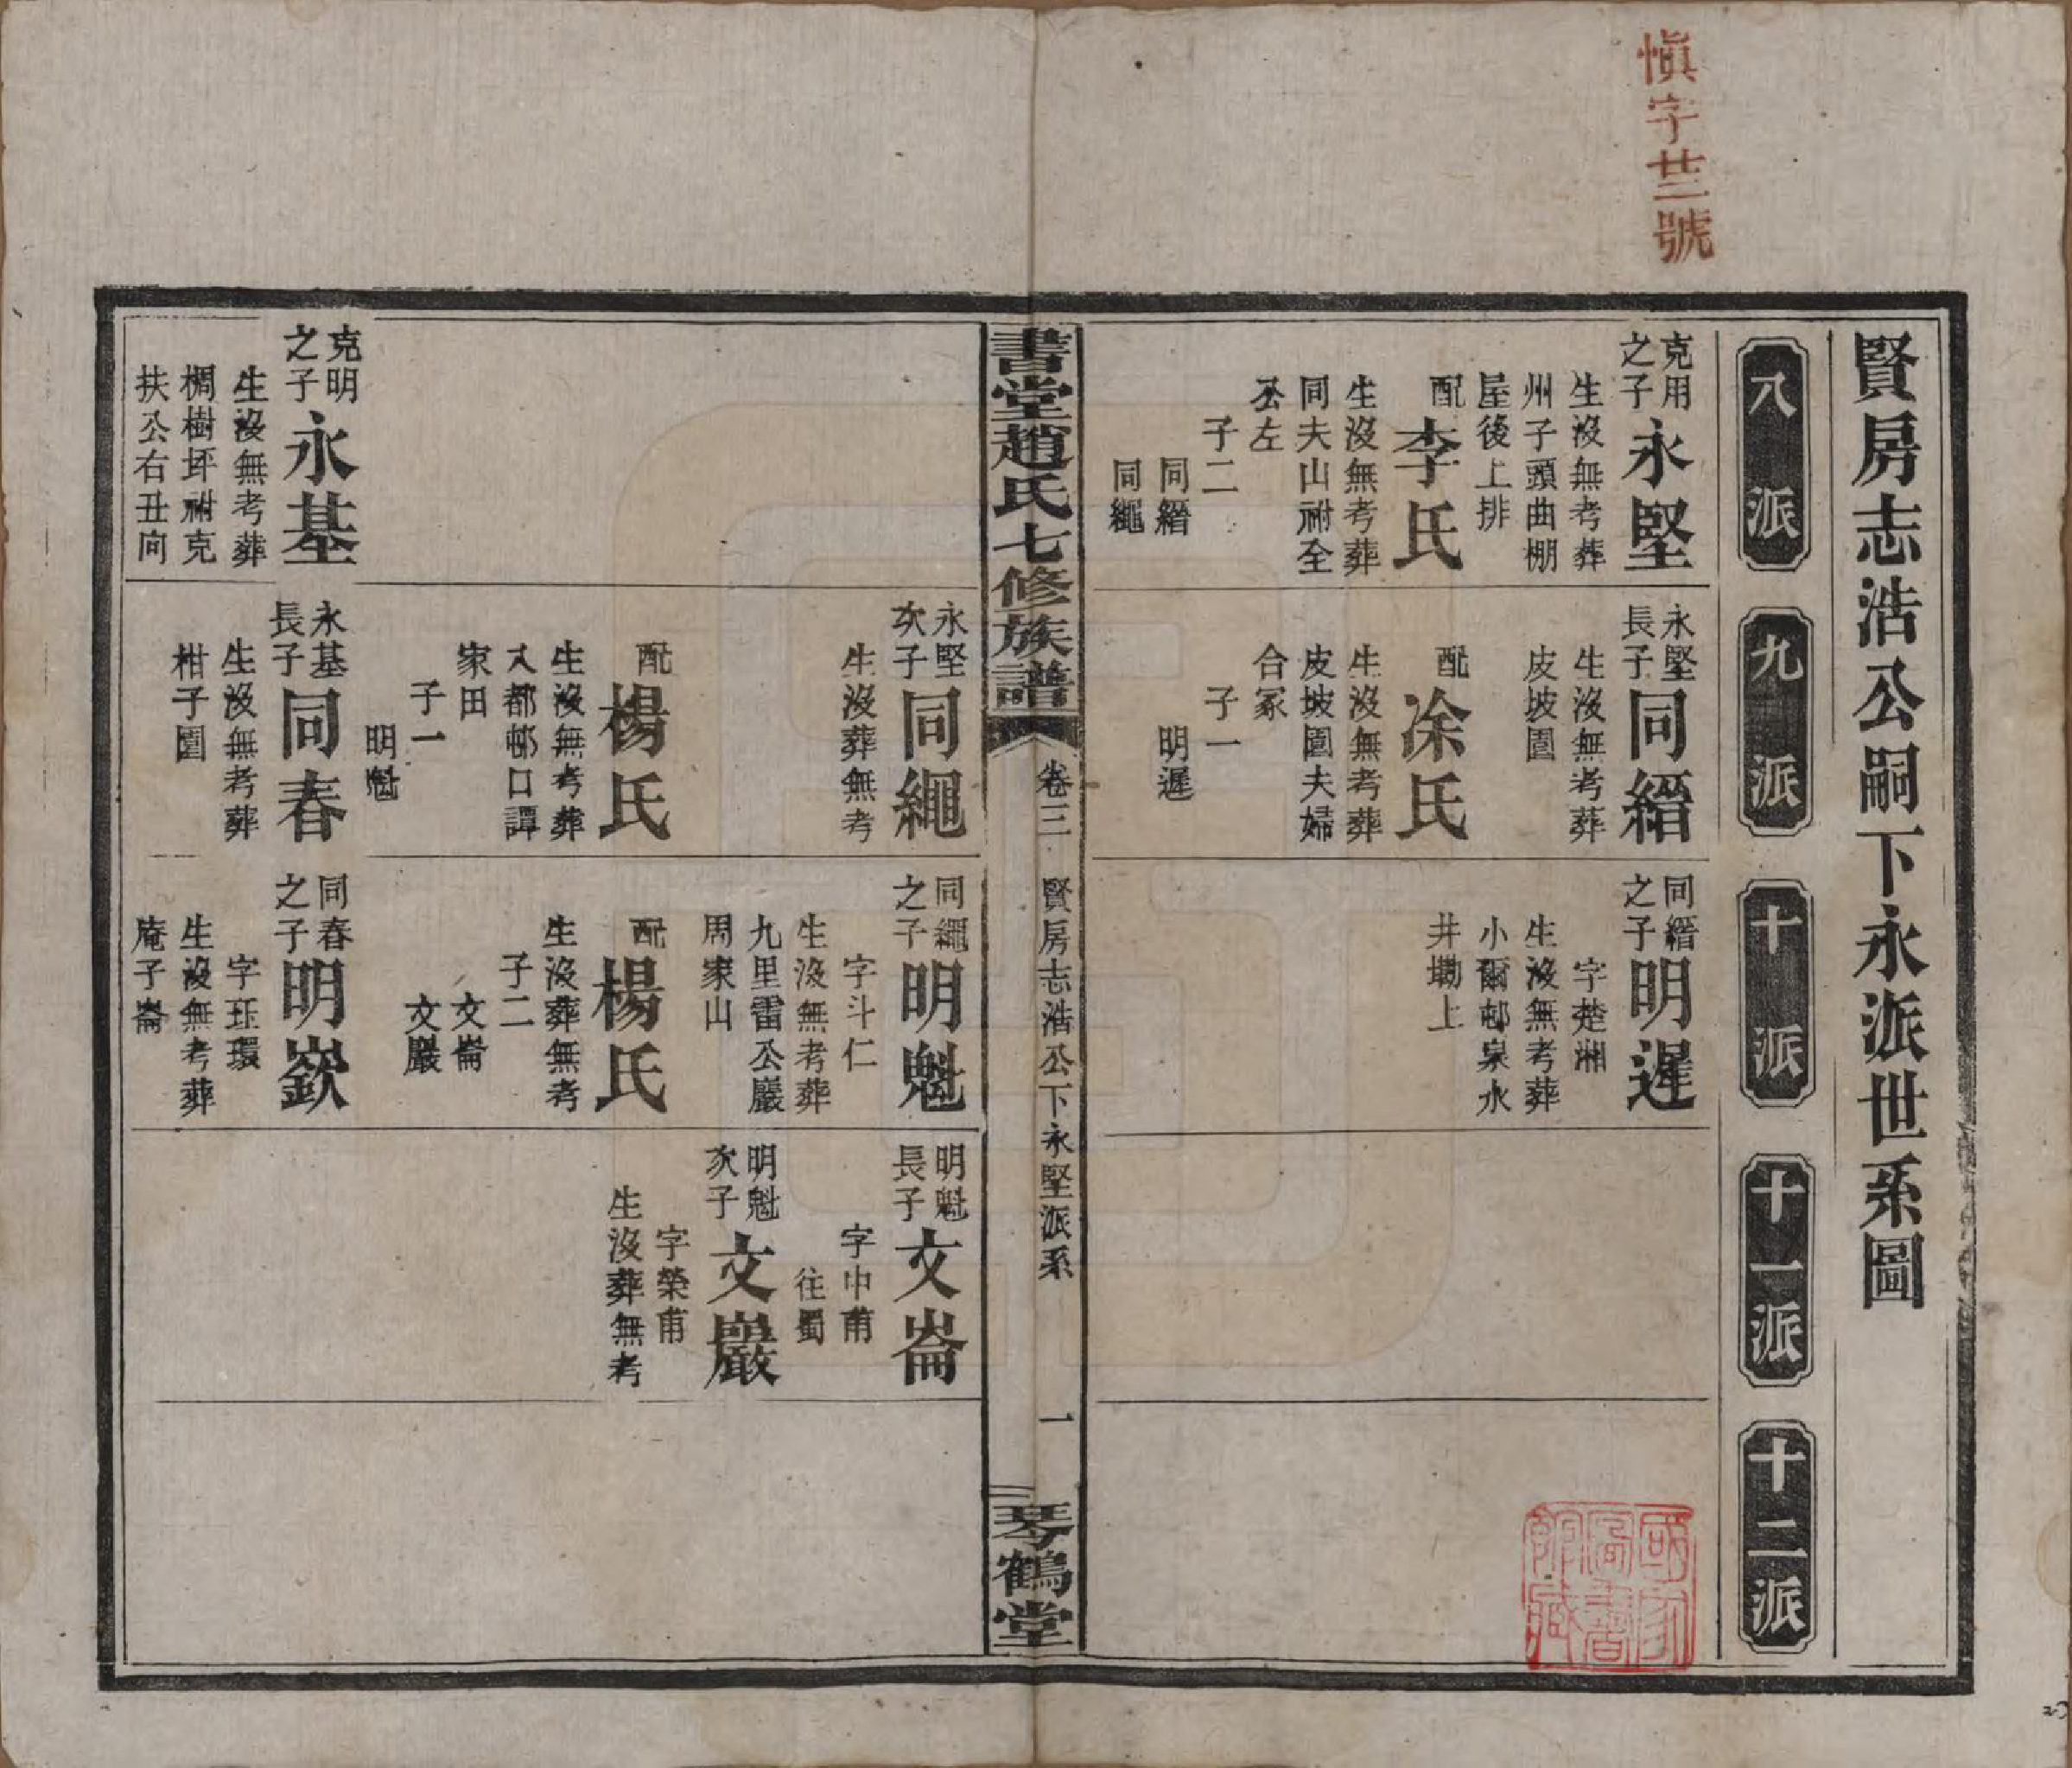 慎字廿三號
賢房志浩公嗣下永派世系圖
八派
九派
十派
十一派
十二派
克用
之子
永堅
生沒無考葬
州子頭曲棚
屋後上排
配
李氏
生沒無考葬
同夫山祔全
公左
子二
同縉
同繩
永堅
長子
同縉
生沒無考葬
皮坡園
配
涂氏
生沒無考葬
皮坡園夫婦
合冢
子一
明遲
同縉
之子
明遲
字楚湘
生沒無考葬
小爾邨泉水
井墈上
書堂趙氏七修族譜
卷三
賢房志浩公下永堅派系
一
琴鶴堂
永堅
次子
同繩
生沒葬無考
配
楊氏
生沒無考葬
八都邨口譚
家田
子一
明魁
同繩
之子
明魁
字斗仁
生沒無考葬
九里雷公巖
周家山
配
楊氏
生沒葬無考
子二
文崙
文巖
明魁
長子
文崙
字中甫
往蜀
明魁
次子
文巖
字榮甫
生沒葬無考
克明
之子
永基
生沒無考葬
椆樹坪祔克
扶公右丑向
永基
長子
同春
生沒無考葬
柑子園
同春
之子
明嶔
字珏環
生沒無考葬
庵子崙
國家圖書館藏